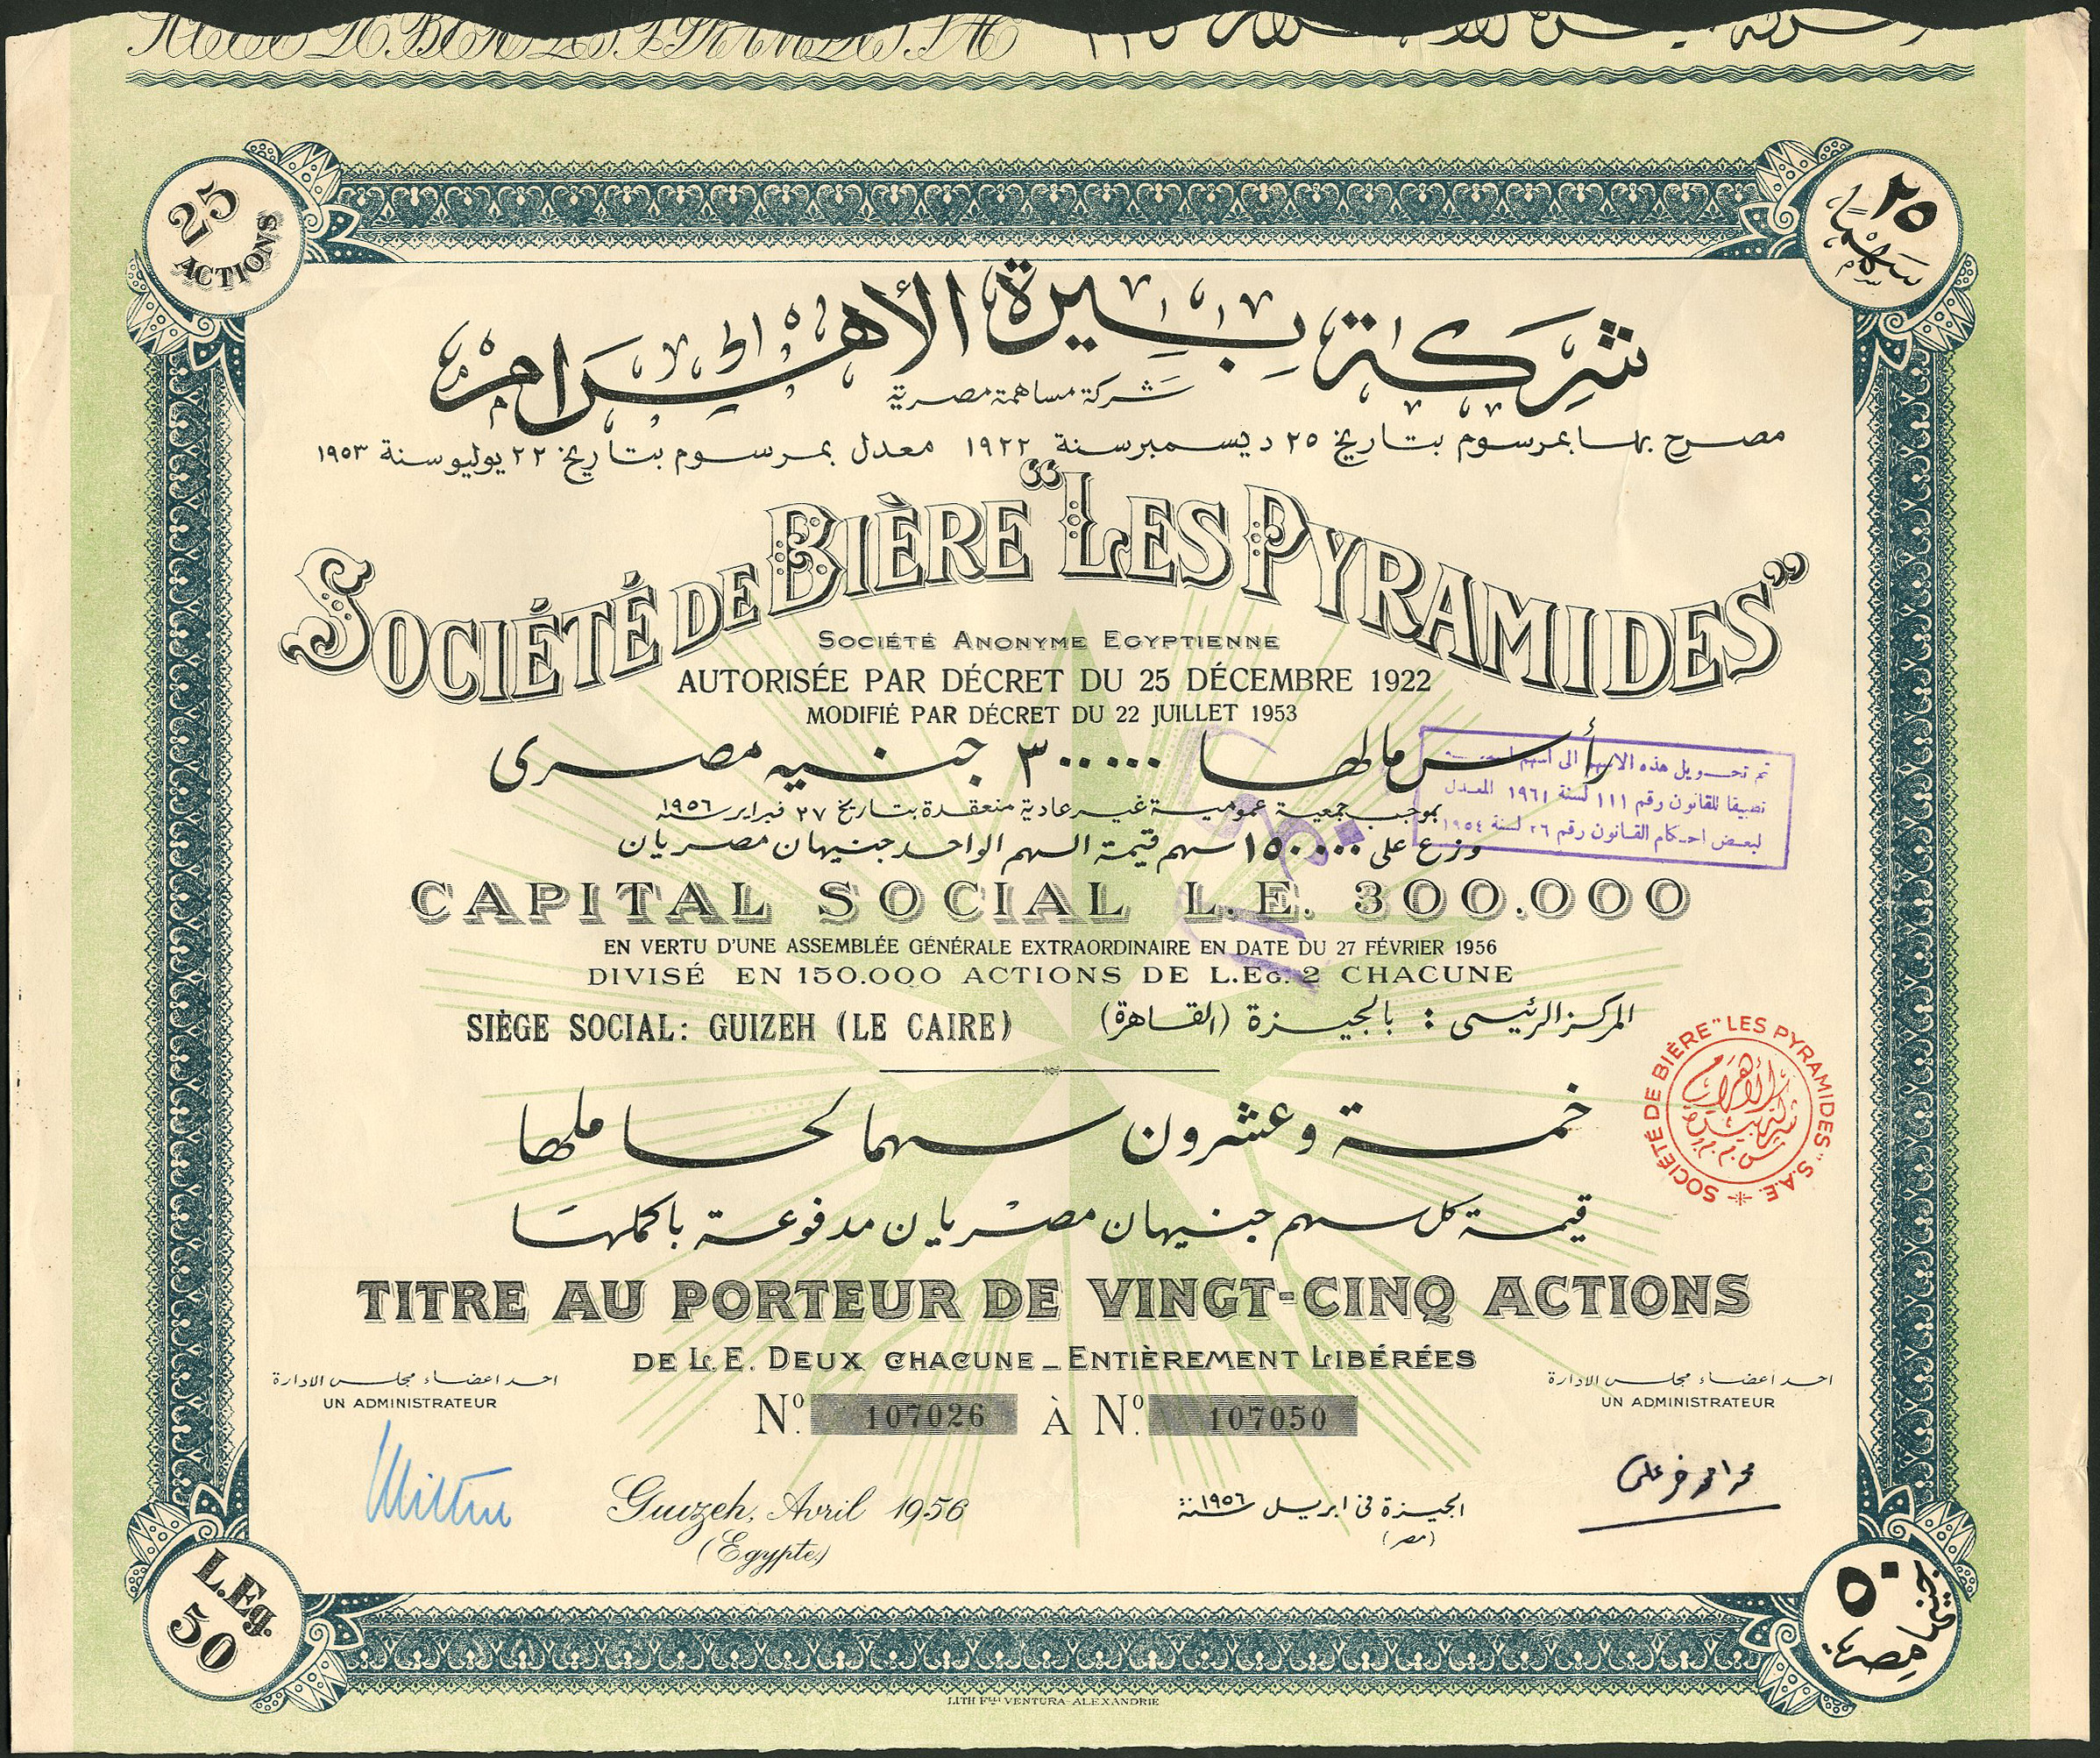 25
ACTIONS
٢٥
سهمًا
شركة بيرة الأهرام
شركة مساهمة مصرية
مصرح بها بمرسوم بتاريخ ٢٥ ديسمبر سنة ١٩٢٢ معدل بمرسوم بتاريخ ٢٢ يوليو سنة ١٩٥٣
SOCIÉTÉ DE BIÈRE "LES PYRAMIDES"
SOCIÉTÉ ANONYME EGYPTIENNE
AUTORISÉE PAR DÉCRET DU 25 DÉCEMBRE 1922
MODIFIÉ PAR DÉCRET DU 22 JUILLET 1953
رأس مالها ٣٠٠٠٠٠ جنيه مصرى
بموجب جمعية عمومية غير عادية منعقدة بتاريخ ٢٧ فبراير سنة ١٩٥٦
وزع على ١٥٠٠٠٠ سهم قيمة السهم الواحد جنيهان مصريان
تم تحويل هذه الاسهم الى اسهم
تطبيقا للقانون رقم ١١١ لسنة ١٩٦١ المعدل
لبعض احكام القانون رقم ٢٦ لسنة ١٩٥٤
CAPITAL SOCIAL L.E. 300.000
EN VERTU D'UNE ASSEMBLÉE GÉNÉRALE EXTRAORDINAIRE EN DATE DU 27 FÉVRIER 1956
DIVISÉ EN 150.000 ACTIONS DE L.EG. 2 CHACUNE
SIÈGE SOCIAL: GUIZEH (LE CAIRE)
المركز الرئيسى : بالجيزة (القاهرة)
SOCIÉTÉ DE BIÈRE "LES PYRAMIDES" S.A.E.
خمسة وعشرون سهما لحاملها
قيمة كل سهم جنيهان مصريان مدفوعة باكملها
TITRE AU PORTEUR DE VINGT-CINQ ACTIONS
DE L.E. DEUX CHACUNE _ ENTIÈREMENT LIBÉRÉES
احد اعضاء مجلس الادارة
UN ADMINISTRATEUR
احد اعضاء مجلس الادارة
UN ADMINISTRATEUR
No. 107026 À No. 107050
Guizeh, Avril 1956
(Egypte)
الجيزة فى ابريل سنة ١٩٥٦
(مصر)
L.Eg.
50
٥٠
جنيها مصريا
LITH Flli VENTURA-ALEXANDRIE